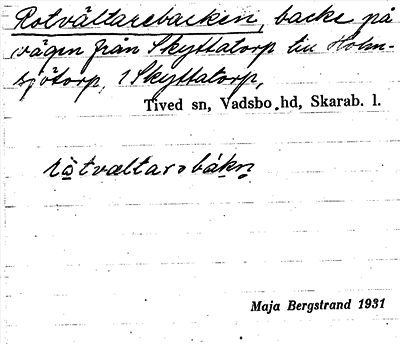 Rotvältarebacken, backe på
vägen från Skyttatorp till Holm-
sjötorp, i Skyttatorp,
Tived sn, Vadsbo hd, Skarab. l.
Maja Bergstrand 1931